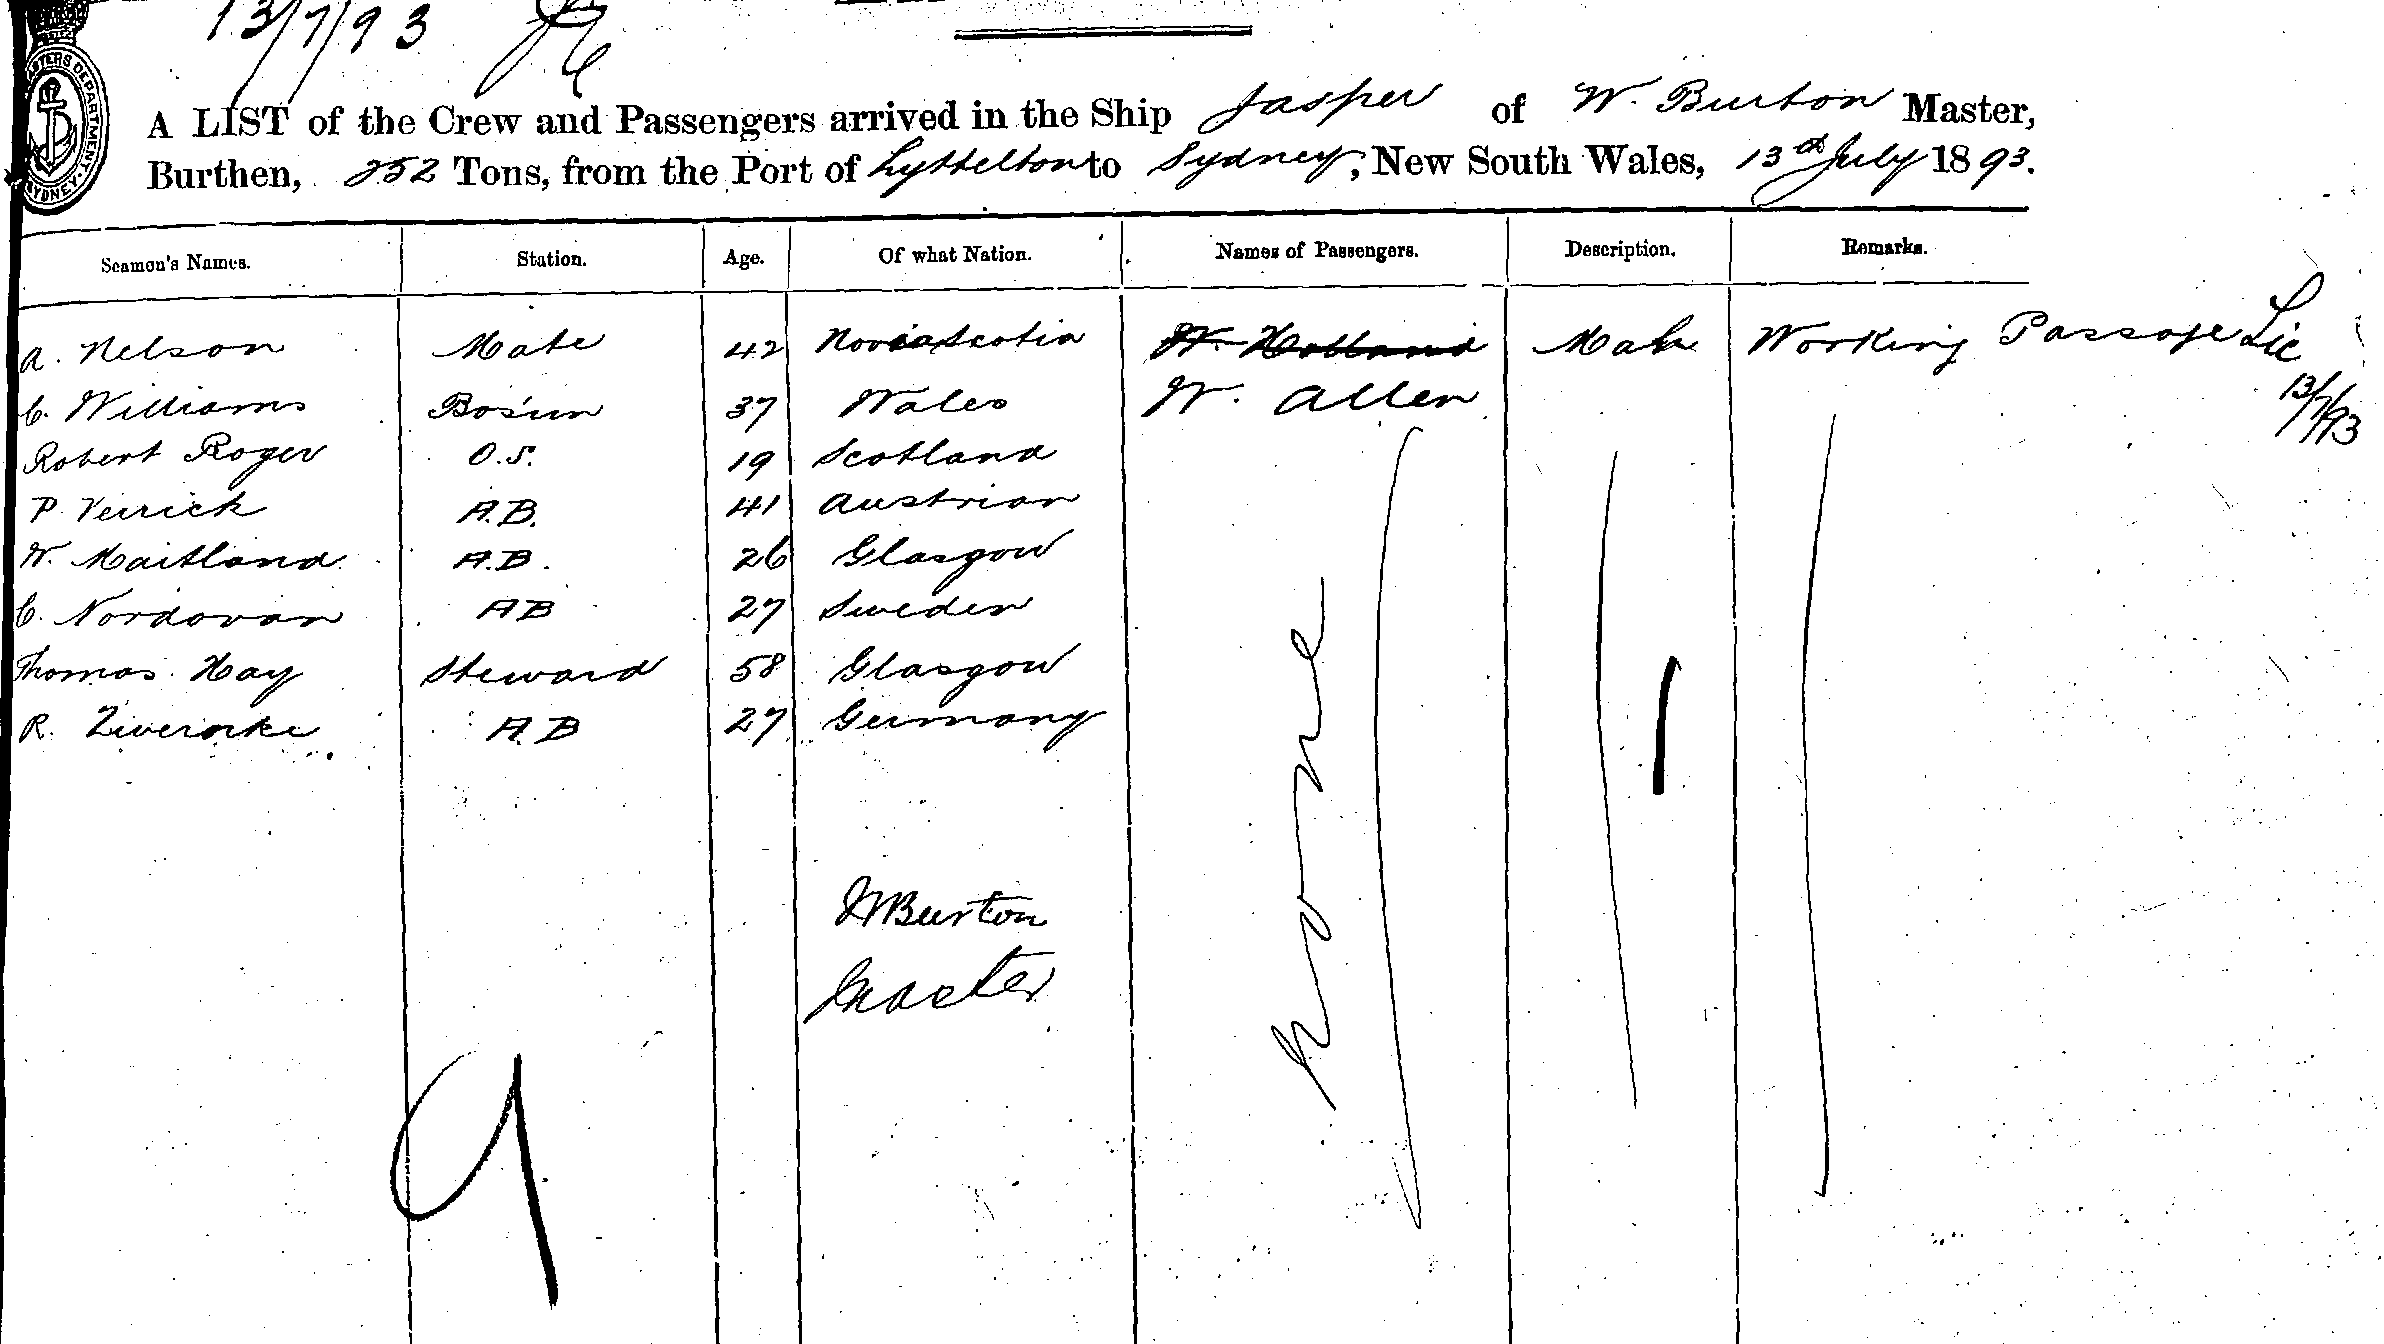 13/7/93
A LIST of the Crew and Passengers arrived in the Ship Jasper of W. Burton Master,
Burthen, 252 Tons, from the Port of Lyttelton to Sydney, New South Wales, 13th July 1893.
Seamen's Names. Station. Age. Of what Nation. Names of Passengers. Description. Remarks.
A. Nelson Mate 42 Nova Scotia W. Holland Male Working Passage
C. Williams Bosun 37 Wales W. Allen 13/7/93
Robert Roger O.S. 19 Scotland
P. A.B. 41 Austrian
W. Maitland A.B. 26 Glasgow
C. Nordovan AB 27 Sweden
Thomas Hay Steward 58 Glasgow
R. A.B 27 Germany
None
1
W Burton
Master
9